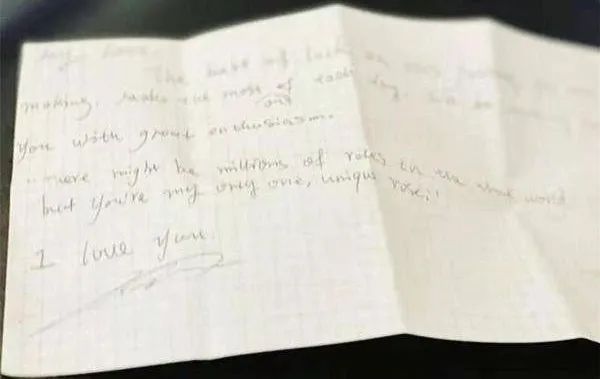 My love,
The best of luck on
making. make the most of each day.
out
you with great enthusiasm..
"There might be millions of roses in the whole world
but you're my only one, unique rose,"
I love you.